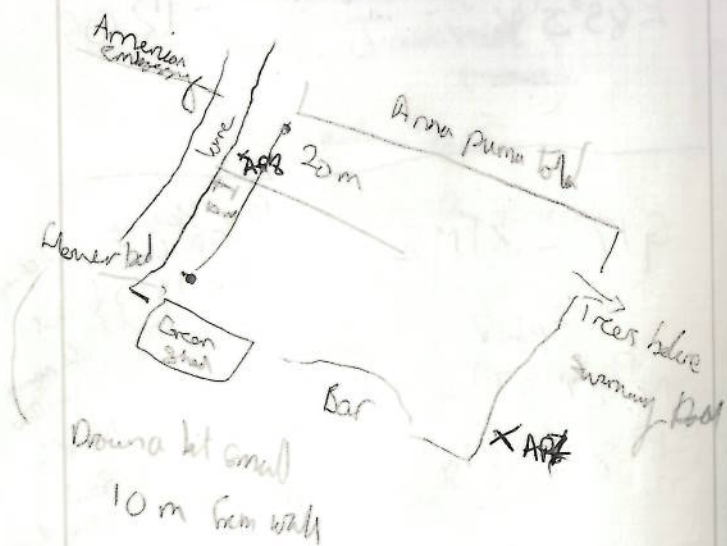 American
embassy
lane
20 m
Anna purna
Flower bed
Green
shed
Bar
Trees before
swimming Pool
Drawn a bit small
10 m from wall